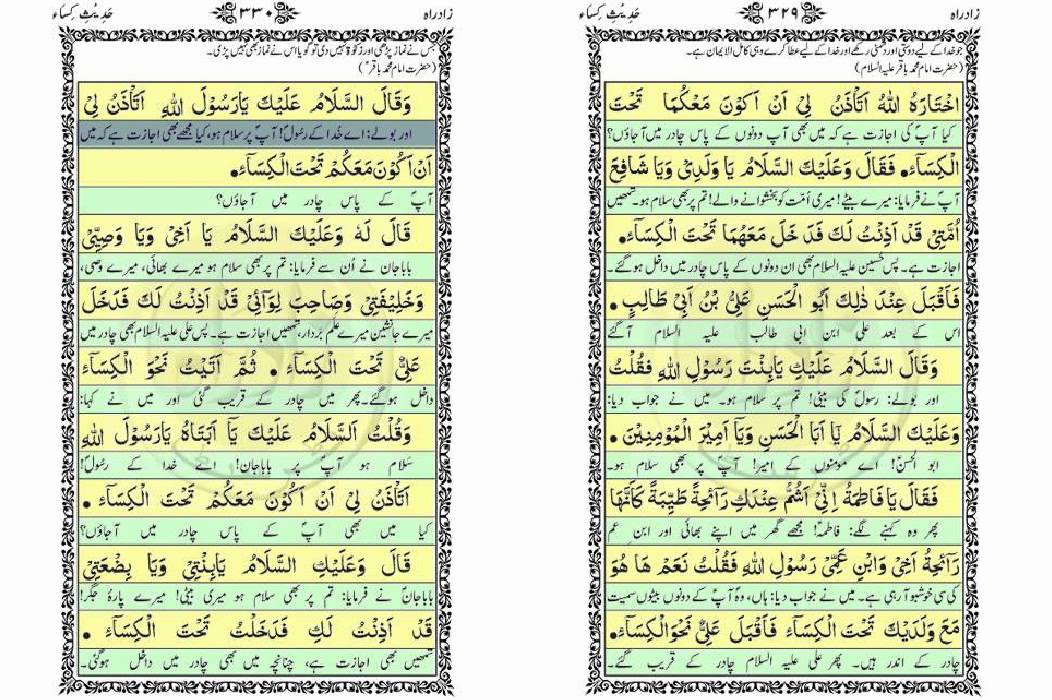 زادراہ ۳۲۹ حَدِیْثِ کِسَاء
جو خدا کے لیے دوستی اور دشمنی رکھے اور خدا کے لیے عطا کرے وہی کامل الایمان ہے۔
(حضرت امام محمد باقر علیہ السلام)
اخْتَارَهُ اللّٰهُ اَتَاْذَنُ لِیْ اَنْ اَكُوْنَ مَعَكُمَا تَحْتَ
کیا آپؐ کی اجازت ہے کہ میں بھی آپ دونوں کے پاس چادر میں آجاؤں؟
الْكِسَآءِ۔ فَقَالَ وَعَلَيْكَ السَّلَامُ يَا وَلَدِیْ وَيَا شَافِعَ
آپؐ نے فرمایا: میرے بیٹے! میری اُمّت کو بخشوانے والے! تم پر بھی سلام ہو۔ تمھیں
اُمَّتِیْ قَدْ اَذِنْتُ لَكَ فَدَخَلَ مَعَهُمَا تَحْتَ الْكِسَآءِ۔
اجازت ہے۔ پس حُسین علیہ السلام بھی ان دونوں کے پاس چادر میں داخل ہو گئے۔
فَاَقْبَلَ عِنْدَ ذٰلِكَ اَبُو الْحَسَنِ عَلِیُّ بْنُ اَبِیْ طَالِبٍ۔
اس کے بعد علی ابن ابی طالب علیہ السلام آگئے
وَقَالَ السَّلَامُ عَلَيْكِ يَابِنْتَ رَسُوْلِ اللّٰهِ فَقُلْتُ
اور بولے: رسولؐ کی بیٹی! تم پر سلام ہو۔ میں نے جواب دیا:
وَعَلَيْكَ السَّلَامُ يَا اَبَا الْحَسَنِ وَيَا اَمِيْرَ الْمُؤْمِنِيْنَ۔
ابو الحسنؑ! اے مومنوں کے امیر! آپؑ پر بھی سلام ہو۔
فَقَالَ يَا فَاطِمَةُ اِنِّیْ اَشَمُّ عِنْدَكِ رَآئِحَةً طَيِّبَةً كَاَنَّهَا
پھر وہ کہنے لگے: فاطمہؑ! مجھے گھر میں اپنے بھائی اور ابن عم
رَآئِحَةُ اَخِیْ وَابْنِ عَمِّیْ رَسُوْلِ اللّٰهِ فَقُلْتُ نَعَمْ هَا هُوَ
کی سی خوشبو آرہی ہے۔ میں نے جواب دیا: ہاں، وہ آپؑ کے دونوں بیٹوں سمیت
مَعَ وَلَدَيْكَ تَحْتَ الْكِسَآءِ فَاَقْبَلَ عَلِیٌّ نَحْوَ الْكِسَآءِ۔
چادر کے اندر ہیں۔ پھر علی علیہ السلام چادر کے قریب گئے۔
زادراہ ۳۳۰ حَدِیْثِ کِسَاء
جس نے نماز پڑھی اور زکوٰۃ نہیں دی تو گویا اس نے نماز بھی نہیں پڑی۔
(حضرت امام محمد باقرؑ)
وَقَالَ السَّلَامُ عَلَيْكَ يَارَسُوْلَ اللّٰهِ اَتَاْذَنُ لِیْ
اور بولے: اے خدا کے رسُولؐ! آپؐ پر سلام ہو، کیا مجھے بھی اجازت ہے کہ میں
اَنْ اَكُوْنَ مَعَكُمْ تَحْتَ الْكِسَآءِ۔
آپؐ کے پاس چادر میں آجاؤں؟
قَالَ لَهٗ وَعَلَيْكَ السَّلَامُ يَا اَخِیْ وَيَا وَصِيِّیْ
باباجان نے اُن سے فرمایا: تم پر بھی سلام ہو میرے بھائی، میرے وصی،
وَخَلِيْفَتِیْ وَصَاحِبَ لِوَآئِیْ قَدْ اَذِنْتُ لَكَ فَدَخَلَ
میرے جانشین میرے عَلَم بردار، تمھیں اجازت ہے۔ پس علی علیہ السلام بھی چادر میں
عَلِیٌّ تَحْتَ الْكِسَآءِ۔ ثُمَّ اَتَيْتُ نَحْوَ الْكِسَآءِ
داخل ہو گئے۔ پھر میں چادر کے قریب گئی اور میں نے کہا:
وَقُلْتُ اَلسَّلَامُ عَلَيْكَ يَآ اَبَتَاهُ يَارَسُوْلَ اللّٰهِ
سَلام ہو آپؐ پر باباجان! اے خدا کے رسُولؐ!
اَتَاْذَنُ لِیْ اَنْ اَكُوْنَ مَعَكُمْ تَحْتَ الْكِسَآءِ۔
کیا میں بھی آپؐ کے پاس چادر میں آجاؤں؟
قَالَ وَعَلَيْكِ السَّلَامُ يَابِنْتِیْ وَيَا بِضْعَتِیْ
باباجانؐ نے فرمایا: تم پر بھی سلام ہو میری بیٹی! میرے پارۂ جگر!
قَدْ اَذِنْتُ لَكِ فَدَخَلْتُ تَحْتَ الْكِسَآءِ۔
تمھیں بھی اجازت ہے، چنانچہ میں بھی چادر میں داخل ہوگئی۔